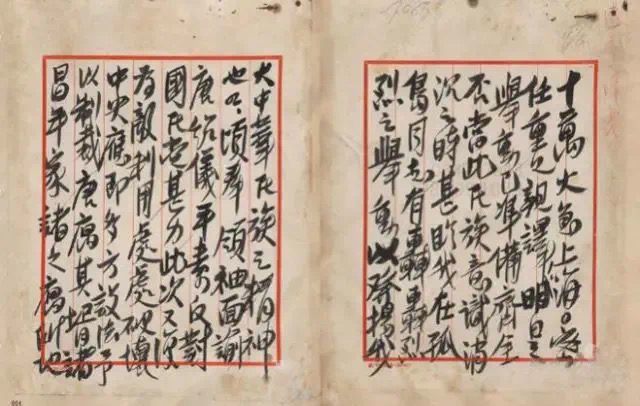 十萬火急上海〇密
任重兄親譯明
舉動已準備齊全
否當此民族意識消
沉之時甚盼我在孤
島同志有轟轟烈
烈之舉動以發揚我
大中華民族之精神
也頃奉領袖面諭
唐紹儀平素反對
國民黨甚力此次又復
為敵利用處處破壞
中央應即多方設法予
以制裁唐寓其諸
昌年家諸之寓所地